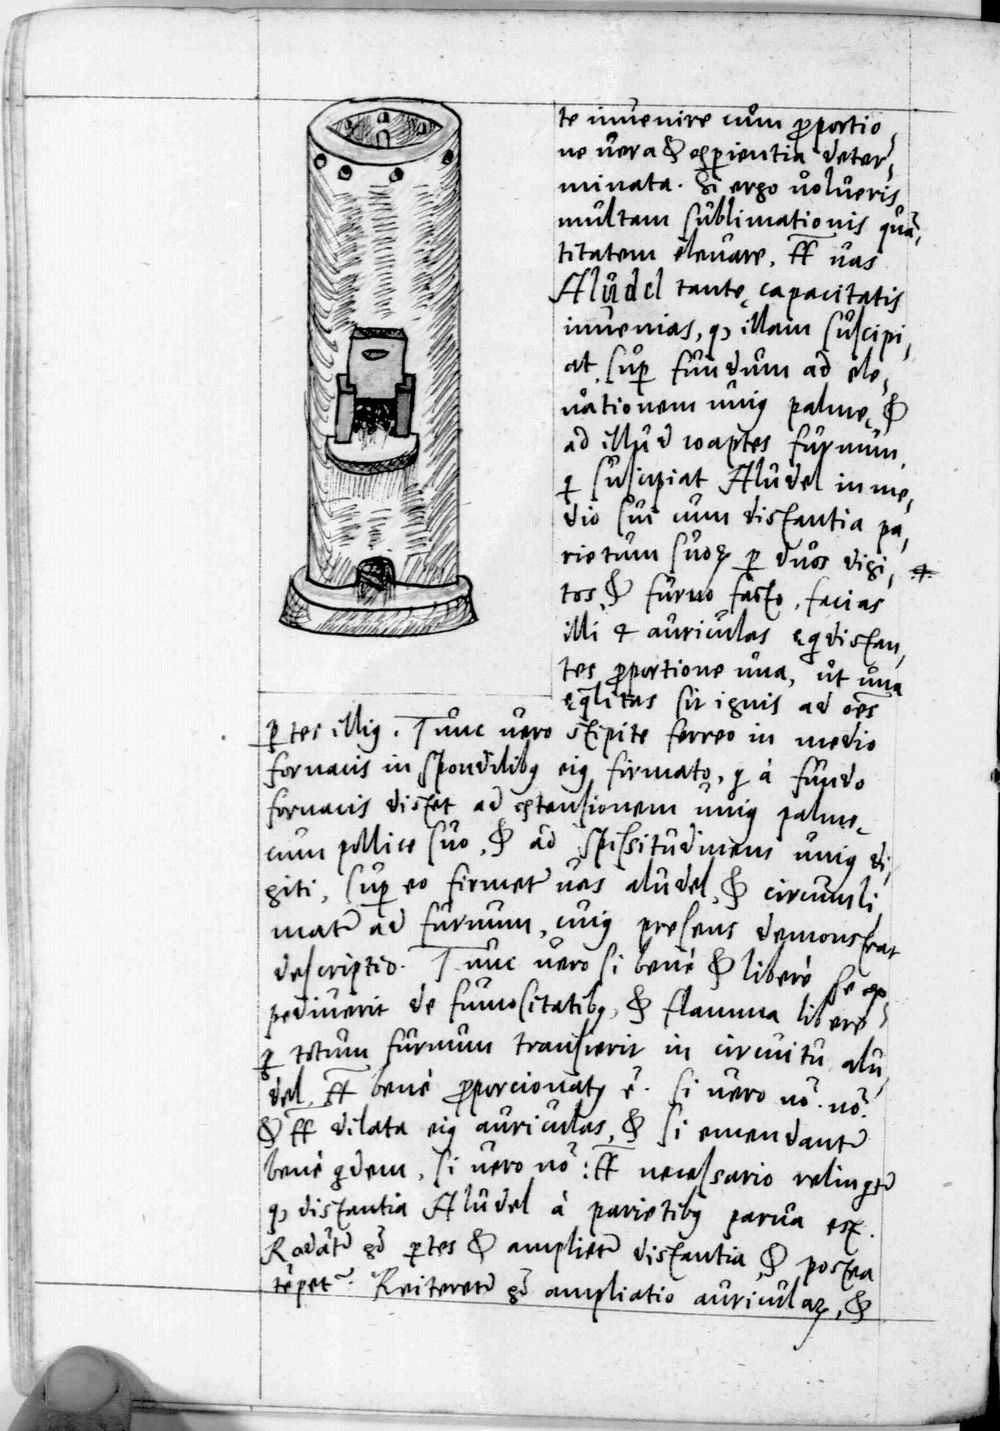 te inuenire cum proportio,
ne uera & experientia deter,
minata. Si ergo uolueris
multam sublimationis quā,
titatem eleuare, tūc uas
Aludel tantę capacitatis
inuenias, qȝ illam suscipi,
at sup fundum ad ele,
uationem uniꝯ palmę, &
ad illud coaptes furnum,
q suscipiat Aludel in me,
dio sui cum distantia pa,
rietum suoꝝ p duos digi,
tos, & furno facto, facias
illi 4 auriculas ęqdistan,
tes proportione una, ut una
ęqlitas sit ignis ad oēs
ptes illiꝯ. Tunc uero stipite ferreo in medio
fornacis in spondilibꝯ eiꝯ firmato, q à fundo
fornacis distet ad extensionem uniꝯ palmę
cum pollice suo, & ad spissitudinem uniꝯ di,
giti, sup eo firmet̄ uas aludel, & circumli,
niat̄ ad furnum, cuiꝯ presens demonstrat
descriptio. Tunc uero si benè & liberè se ex,
pediuerit de fumositatibꝯ, & flamma liberè
p totum furnum transierit in circuitu alu,
del, tūc benè proporcionatꝯ ē. Si uero nō. nō.
& tūc dilata eiꝯ auriculas, & si emendant̄
benè qdem, si uero nō: tūc necessario relinqt̄
qȝ distantia Aludel à parietibꝯ parua est.
Radāt̄ gͦ ptes & ampliet̄ distantia, & postea
tēpet̄. Reiteret̄ gͦ ampliatio auriculaꝝ, &